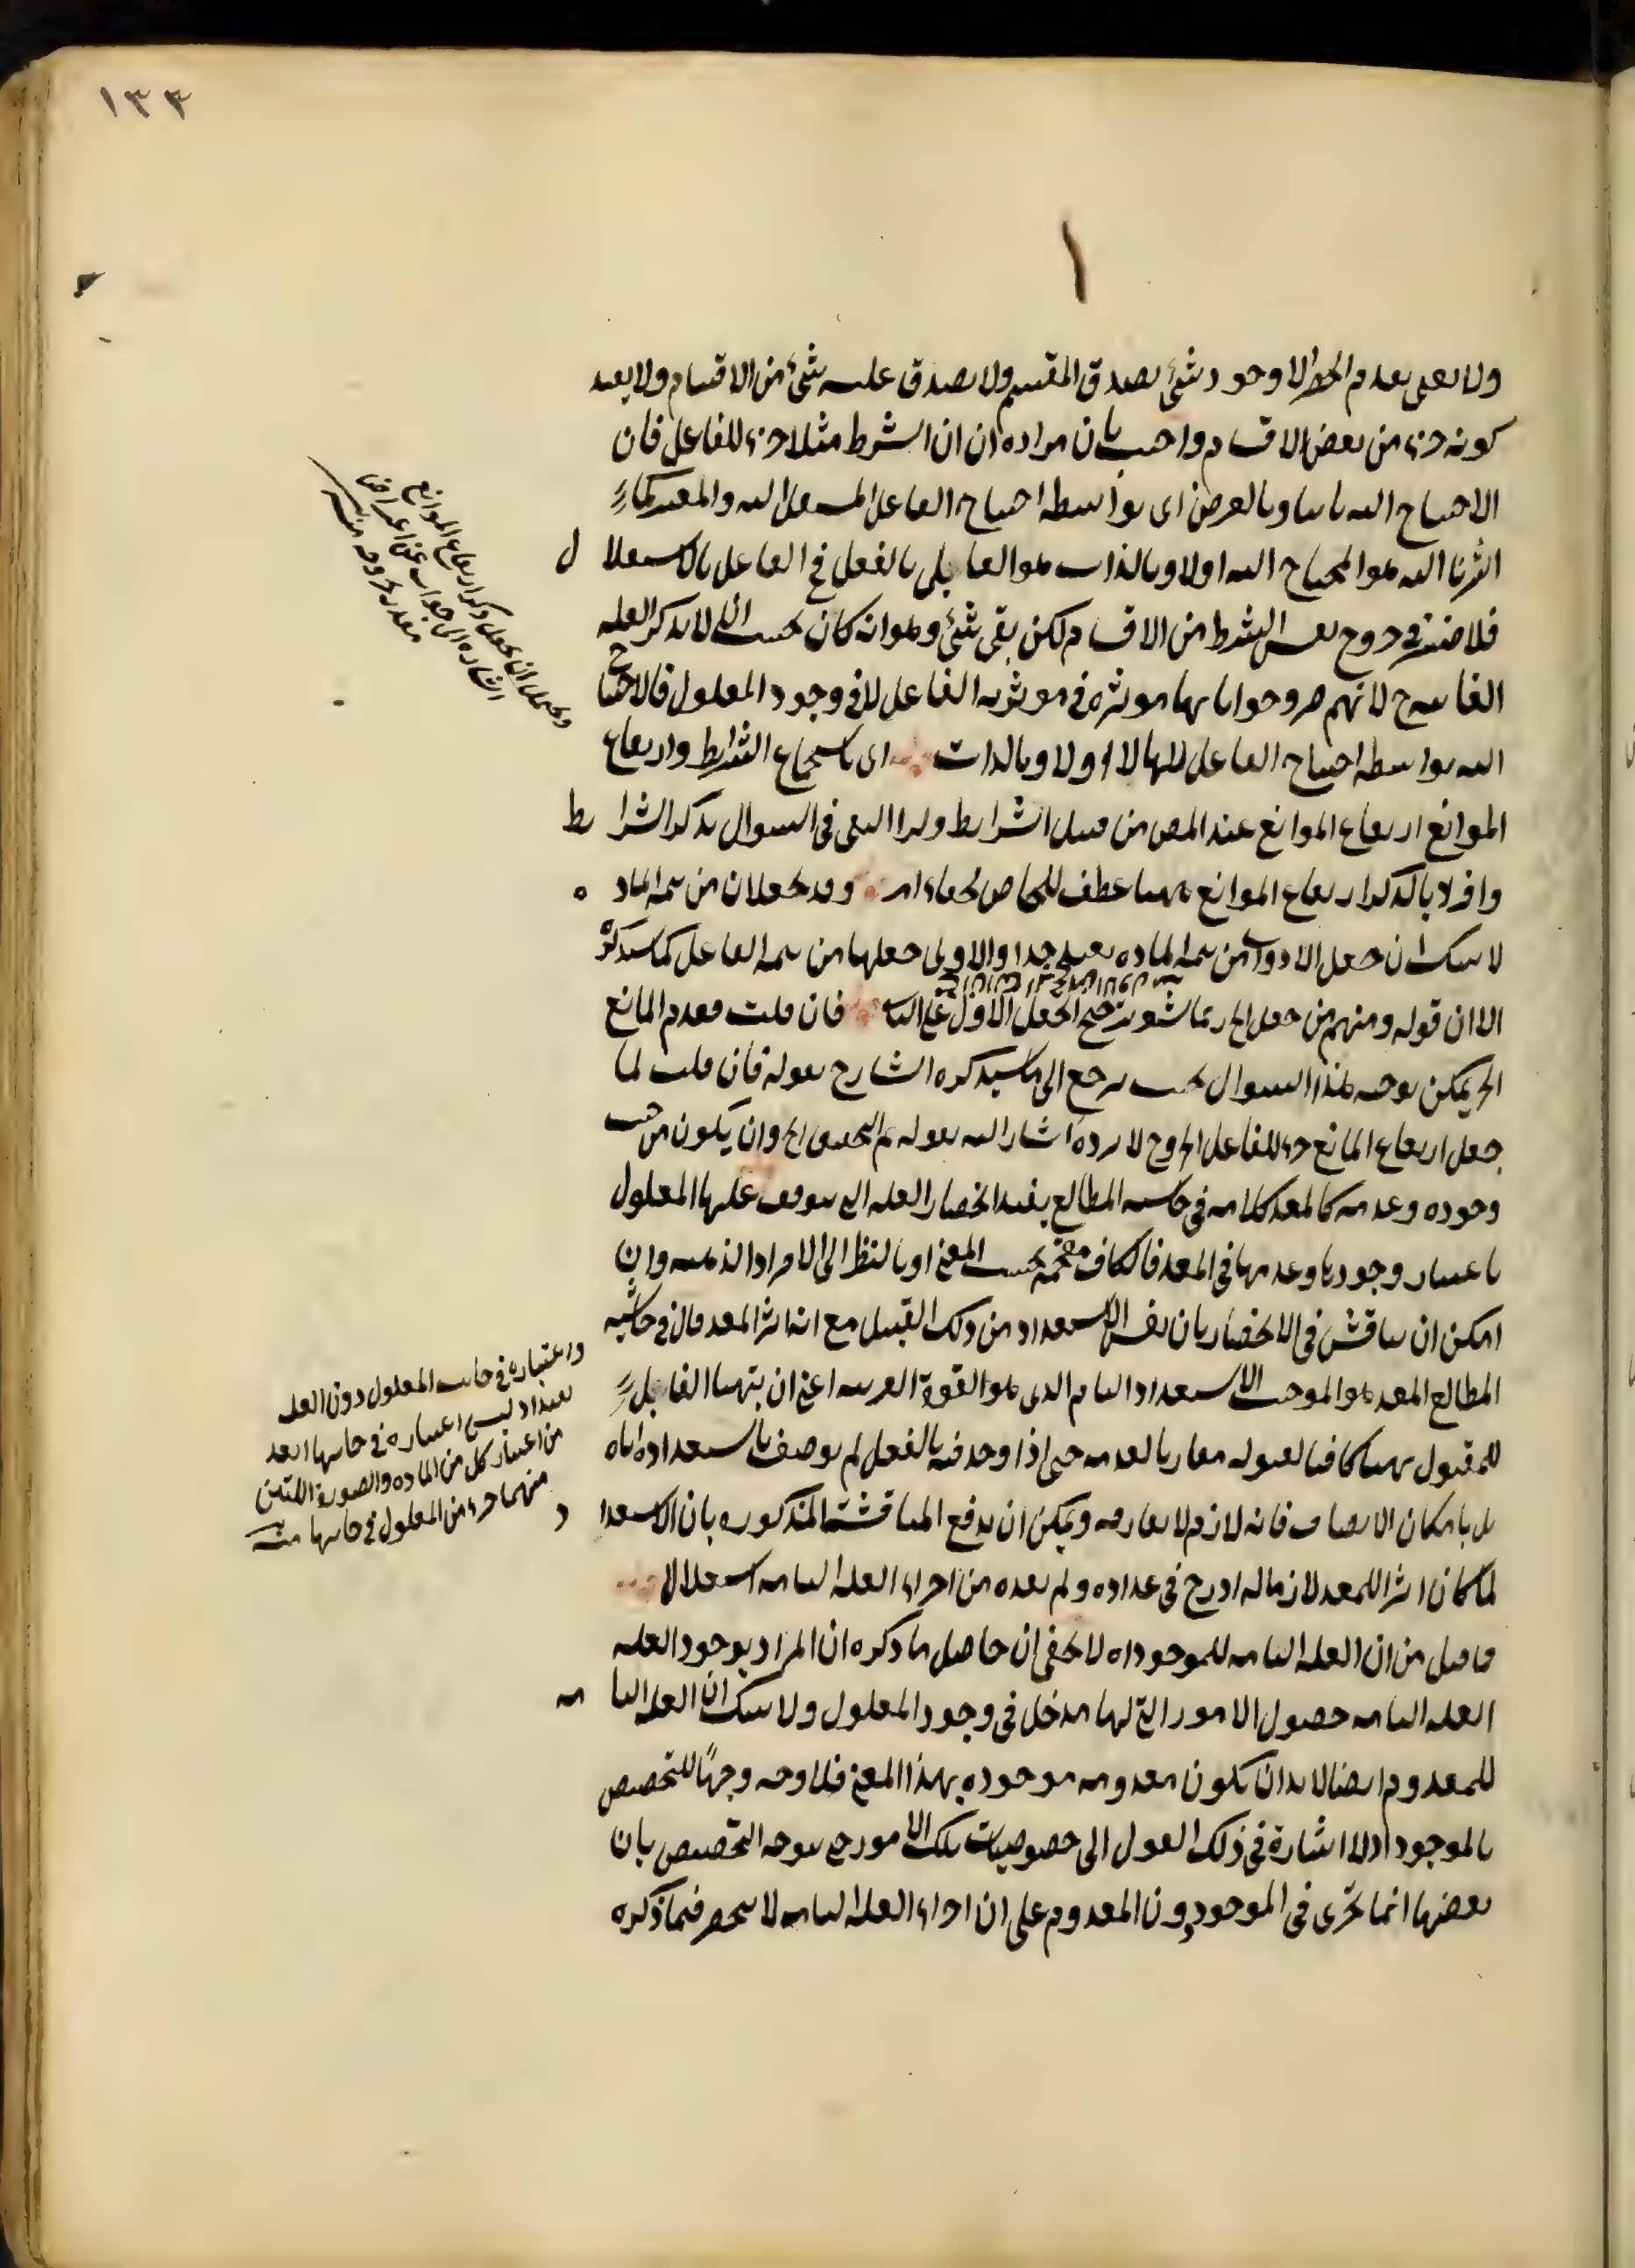 ١٣٣
ولا يعنى بعدم الحصر الا وجود شئ يصدق المقسم ولا يصدق عليه شئ من الاقسام ولا يفيد
كونه جزء من بعض الاقسام واجيب بان مراده ان الشرط مثلا جزء للفاعل فان
الاحتياج اليه ثانيا وبالعرض اى بواسطة احتياج الفاعل المستقل اليه والمعتبر كما
اشرنا اليه هو المحتاج اليه اولا وبالذات هو القابل بالفعل فى الفاعل بالاستقلال
فلا ضير فى خروج نفس الشرط من الاقسام لكن بقى شئ وهو انه كان يجب ان لا يذكر العلة
الغائية ح لانهم صرحوا بانها مؤثرة فى مؤثرية الفاعل لا فى وجود المعلول فالاحتياج
اليه بواسطة احتياج الفاعل اليها لا اولا وبالذات اى باستجماع الشرايط وارتفاع
الموانع ارتفاع الموانع عند المص من قبيل الشرايط ولذا اكتفى فى السوال بذكر الشرايط
وافراد بالذكر ارتفاع الموانع ههنا عطف للخاص لخفاء امره وقد يجعلان من تتمة المادة
لا شك ان جعل الادوات من تتمة المادة بعيد جدا والاولى جعلها من تتمة الفاعل كما سيذكره
الا ان قوله ومنهم من جعل الخ ربما يشعر بترجيح الجعل الاول على الثانى فان قلت فعدم المانع
الخ يمكن توجيه هذا السوال بحيث يرجع الى ما سيذكره الشارح بقوله فان قلت لما
جعل ارتفاع المانع جزء للفاعل الخ وح لا يرده اشار اليه بقوله ثم التحقيق الخ وان يكون من حيث
وجوده وعدمه كالمعد كلامه فى حاشية المطالع يفيد انحصار العلة التى يتوقف عليها المعلول
باعتبار وجودها وعدمها فى المعد فالكاف مقحمة بحسب المعنى او بالنظر الى الافراد الذهنية وان
امكن ان يناقش فى الانحصار بان نفس الاستعداد من ذلك القبيل مع انه اثر المعد قال فى حاشية
المطالع المعد هو الموجب الاستعداد التام الذى هو القوة القريبة اعنى ان يتهيأ القابل
للمقبول تهيئا كافيا لقبوله مقارنا لعدمه حتى اذا وجد فيه بالفعل لم يوصف باستعداده اياه
بل بامكان الاتصاف فانه لازم لا يفارقه ويمكن ان يدفع المناقشة المذكورة بان الاستعداد
لما كان اثرا للمعد لازما له ادرج فى عداده ولم يعده من اجزاء العلة التامة استقلالا
ما قيل من ان العلة التامة للموجود اه لا يخفى ان حاصل ما ذكره ان المراد بوجود العلة
العلة التامة حصول الامور التى لها مدخل فى وجود المعلول ولا شك ان العلة التامة
للمعدوم ايضا لا بد ان يكون معدومه موجودة بهذا المعنى فلا وجه وجها للتخصيص
بالموجود اذ لا اشارة فى ذلك القول الى خصوصيات تلك الامور حتى يتوجه التخصيص بان
بعضها انما يجرى فى الموجود دون المعدوم على ان اجزاء العلة التامة لا ينحصر فيما ذكره
ويحتمل ان يجعل ذكر ارتفاع الموانع
اشارة الى جواب عن اعتراض
مقدر
واعتباره فى جانب المعلول دون العلة
بعيد اذ ليس اعتباره فى جانبها ابعد
من اعتبار كل من المادة والصورة اللتين
منهما جزء من المعلول فى جانبها منه